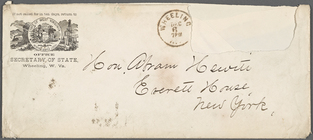 OFFICE
SECRETARY OF STATE,
Wheeling, W. Va.
WHEELING
Hon. Abram Hewitt
Everett House,
New York.